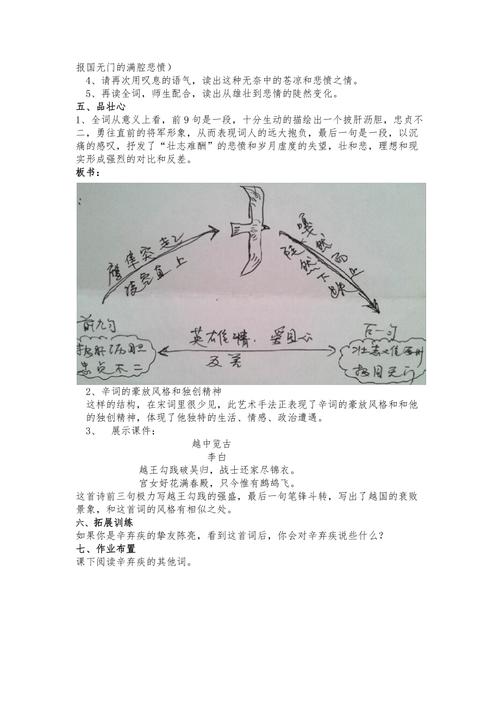 报国无门的满腔悲愤）
4、请再次用叹息的语气，读出这种无奈中的苍凉和悲愤之情。
5、再读全词，师生配合，读出从雄壮到悲情的陡然变化。
五、品壮心
1、全词从意义上看，前9句是一段，十分生动的描绘出一个披肝沥胆，忠贞不
二，勇往直前的将军形象，从而表现词人的远大抱负，最后一句是一段，以沉
痛的感叹，抒发了“壮志难酬”的悲愤和岁月虚度的失望，壮和悲，理想和现
实形成强烈的对比和反差。
板书：
鹰隼突起
凌空直上
戛然而止
陡然下跌
前九句
披肝沥胆
忠贞不二
英雄情 爱国心
反差
后一句
壮志难酬
报国无门
2、辛词的豪放风格和独创精神
这样的结构，在宋词里很少见，此艺术手法正表现了辛词的豪放风格和和他
的独创精神，体现了他独特的生活、情感、政治遭遇。
3、 展示课件：
越中览古
李白
越王勾践破吴归，战士还家尽锦衣。
宫女好花满春殿，只今惟有鹧鸪飞。
这首诗前三句极力写越王勾践的强盛，最后一句笔锋斗转，写出了越国的衰败
景象，和这首词的风格有相似之处。
六、拓展训练
如果你是辛弃疾的挚友陈亮，看到这首词后，你会对辛弃疾说些什么？
七、作业布置
课下阅读辛弃疾的其他词。